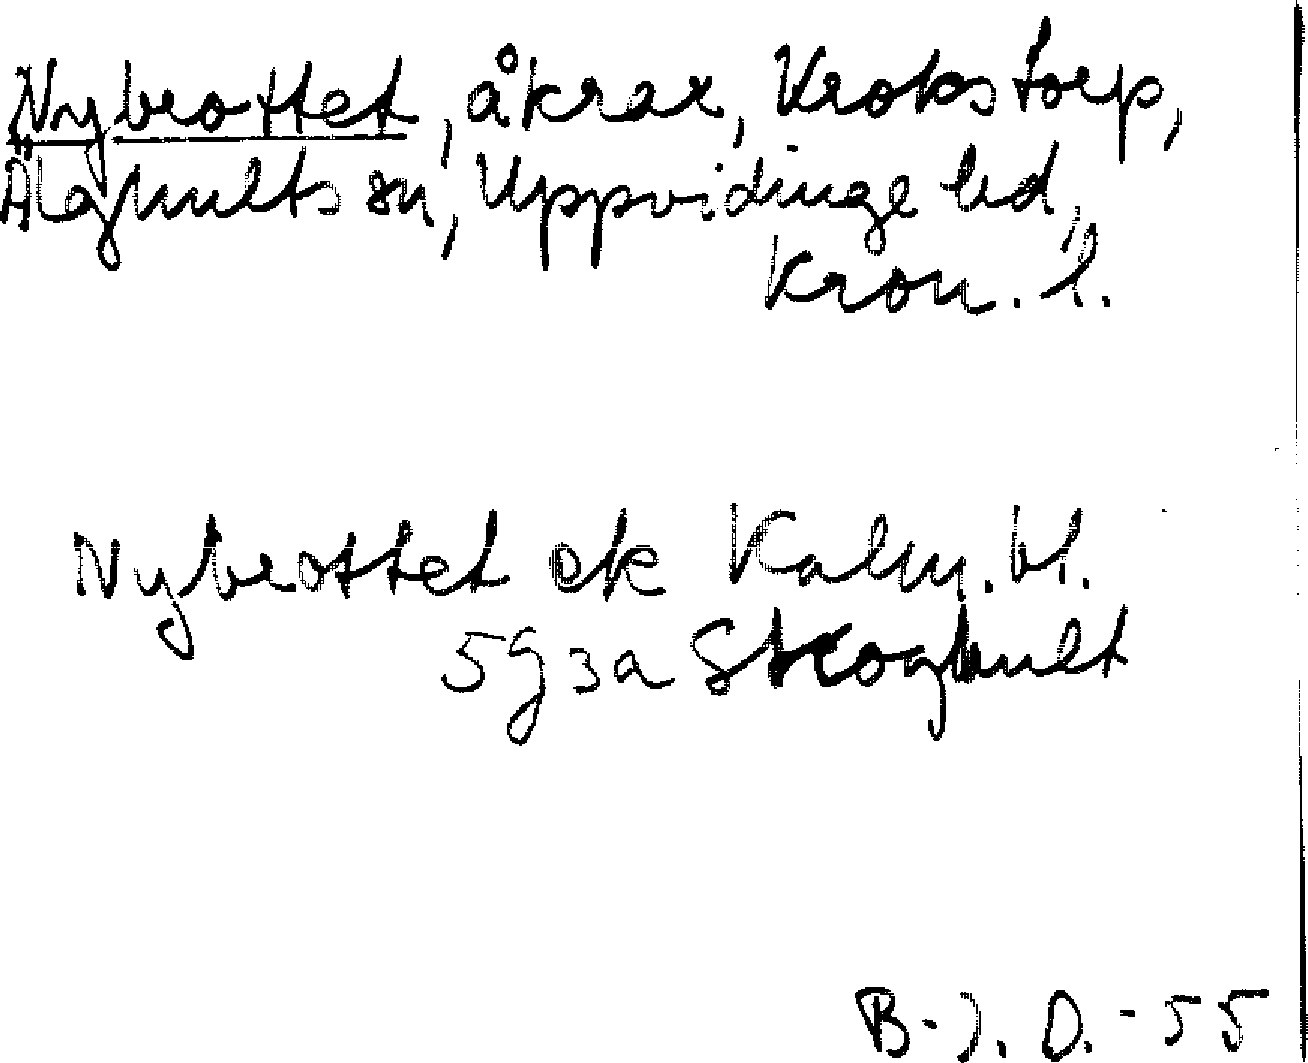 Nybrottet, åkrar, Krokstorp,
Älghults sn, Uppvidinge hd,
Kron. l.
Nybrottet ek Kalm. bl.
5g3a Skoghult
B-J. O. -55